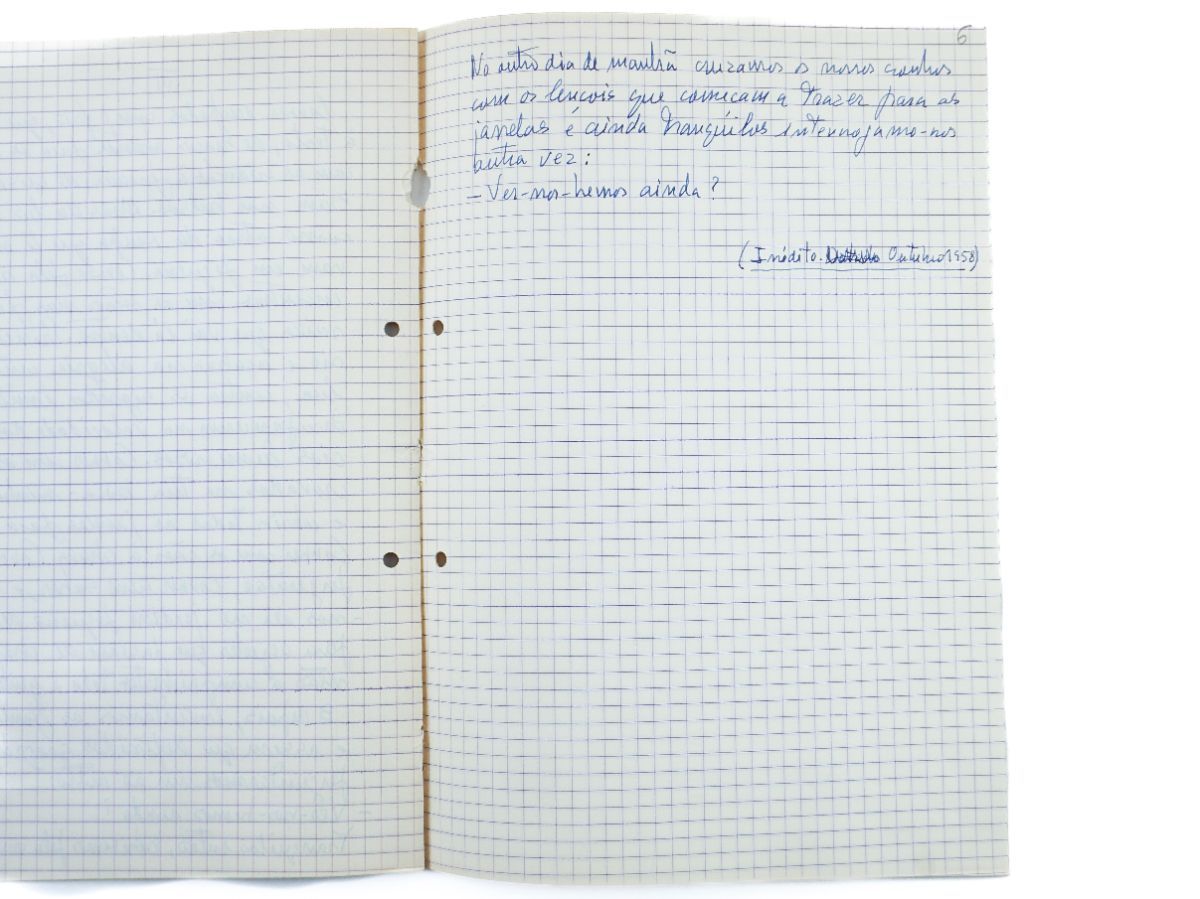 6
No outro dia de manhã cruzamos os nossos sonhos
com os lençois que começam a trazer para as
janelas é ainda tranqüilos interrogamo-nos
outra vez:
— Ver-nos-hemos ainda?
(Inédito. Outubro 1958)